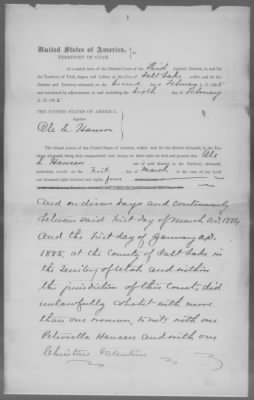 United States of America,
TERRITORY OF UTAH.
At a stated term of the District Court of the Third Judicial District, in and for
the Territory of Utah, begun and holden at the City of Salt Lake within and for the
District and Territory aforesaid, on the Second day of February A. D. 1885
and continued by adjournment to and including the Sixth day of February
A. D. 1885
THE UNITED STATES OF AMERICA,
Against
Ole L. Hansen
The Grand Jurors of the United States of America, within and for the District aforesaid, in the Territory
aforesaid, being duly empanneled and sworn, on their oaths do find and present that Ole
L Hansen
late of said District, in the Territory aforesaid,
heretofore, to-wit, on the First day of March in the year of our Lord
one thousand eight hundred and eighty four
And on divers days and continuously
between said first day of March A.D. 1884
And the first day of January A.D.
1885, at the County of Salt Lake in
the Territory of Utah and within
the jurisdiction of this Court, did
unlawfully cohabit with more
than one woman, to wit, with one
Petronella Hansen and with one
Christine